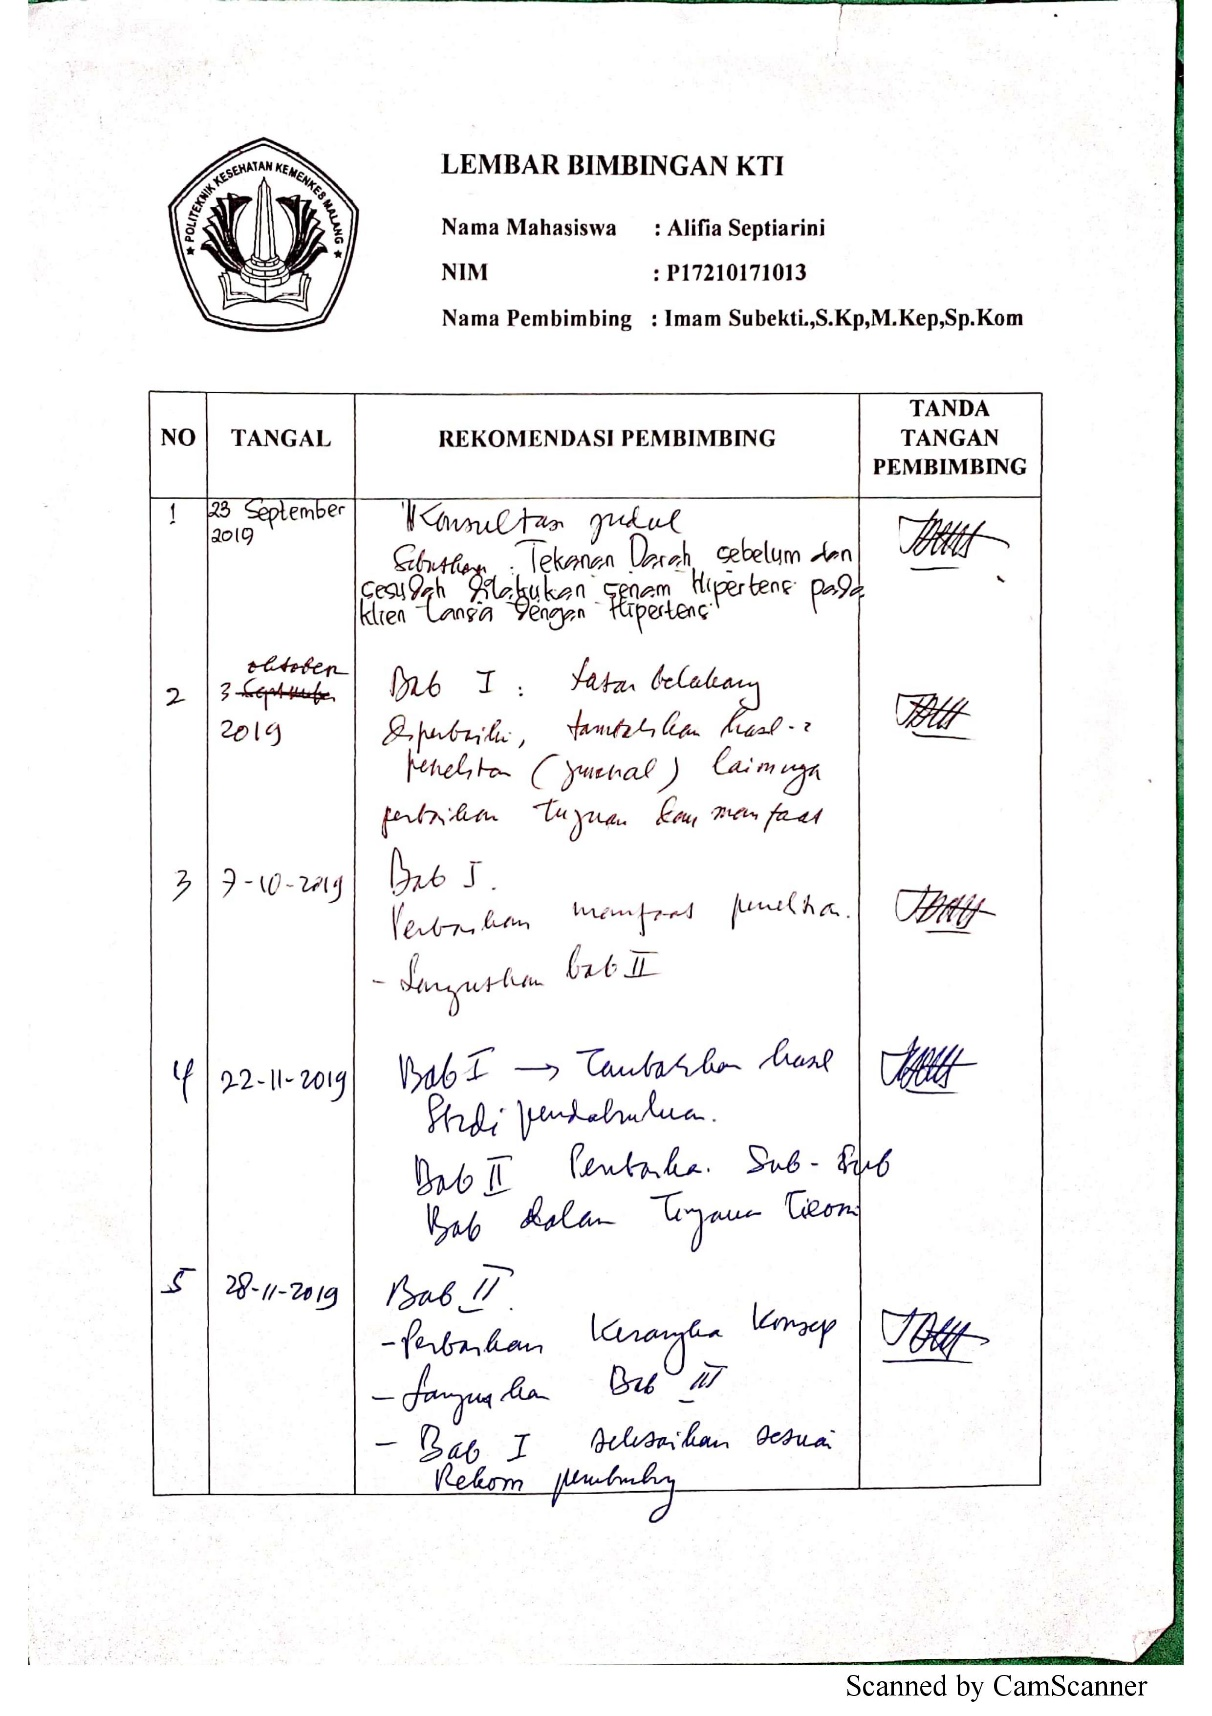 POLITEKNIK KESEHATAN KEMENKES MALANG
LEMBAR BIMBINGAN KTI
Nama Mahasiswa : Alifia Septiarini
NIM : P17210171013
Nama Pembimbing : Imam Subekti.,S.Kp,M.Kep,Sp.Kom
NO TANGAL REKOMENDASI PEMBIMBING TANDA TANGAN PEMBIMBING
1 23 September 2019
Konsultasi judul
Tekanan Darah sebelum dan
sesudah dilakukan senam Hipertensi pada
klien Lansia dengan Hipertensi
2 3 oktober 2019
Bab I : latar belakang
diperbaiki, tambahkan hasil-2
penelitian (jurnal) lainnya
perbaikan tujuan dan manfaat
3 7-10-2019
Bab I.
Perbaikan manfaat penelitian.
- Lanjutkan bab II
4 22-11-2019
Bab I → Tambahkan hasil
Studi pendahuluan.
Bab II Perbaika. Sub-Sub
Bab dalam Tinjauan Teori
5 28-11-2019
Bab II.
- Perbaikan Kerangka Konsep
- Lanjutkan Bab III
- Bab I selesaikan sesuai
Rekom pembimbing
Scanned by CamScanner